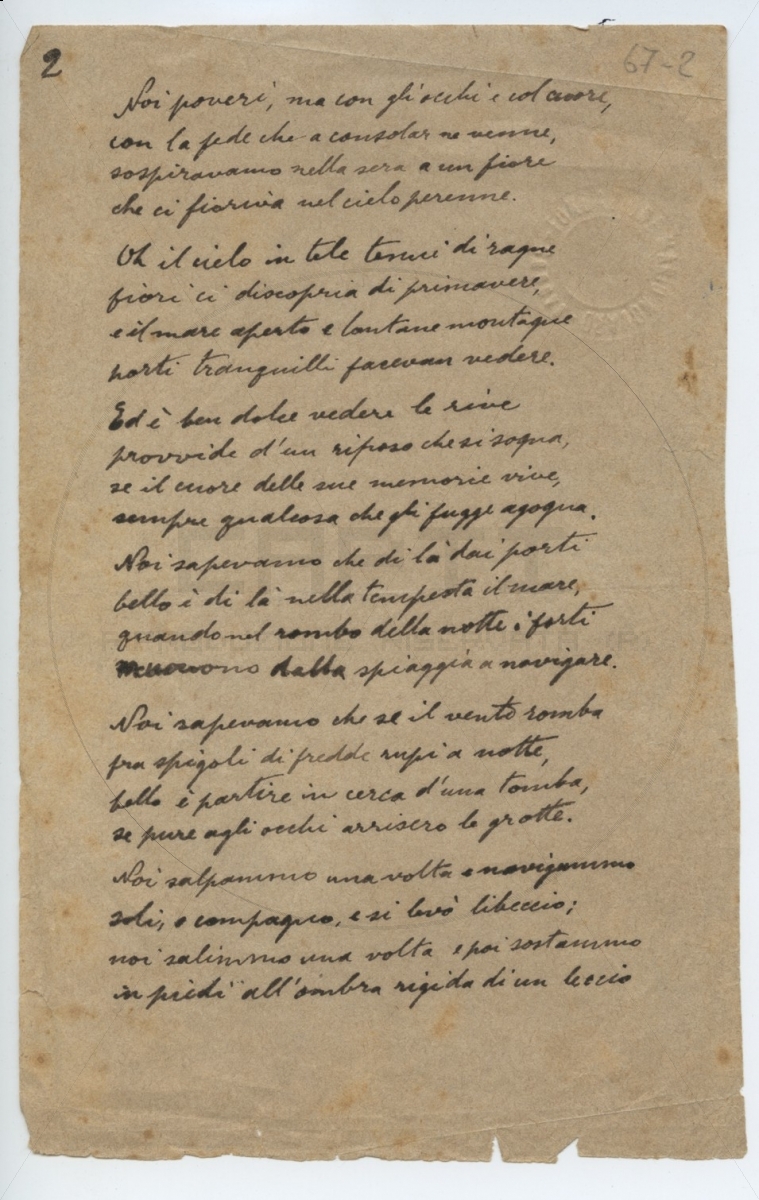 2
67-2
Noi poveri, ma con gli occhi e col cuore,
con la fede che a consolar ne venne,
sospiravamo nella sera a un fiore
che ci fioriva nel cielo perenne.
Oh il cielo in tele tenui di ragne
fiori ci discopria di primavere,
e il mare aperto e lontane montagne
porti tranquilli facevan vedere.
Ed è ben dolce vedere le rive
provvide d'un riposo che si sogna,
se il cuore delle sue memorie vive,
sempre qualcosa che gli fugge agogna.
Noi sapevamo che di là dai porti
bello è di là nella tempesta il mare,
quando nel rombo della notte i forti
muovono dalla spiaggia a navigare.
Noi sapevamo che se il vento romba
fra spigoli di fredde rupi a notte,
bello è partire in cerca d'una tomba,
se pure agli occhi arrisero le grotte.
Noi salpammo una volta e navigammo
soli, o compagno, e si levò libeccio;
noi salimmo una volta e poi sostammo
in piedi all'ombra rigida di un leccio